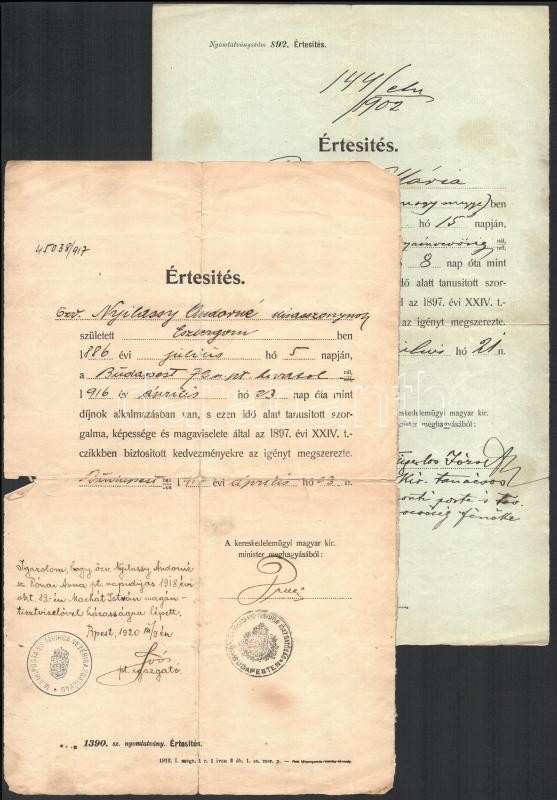 Nyomtatványszám 892. Értesités.
144/eln
1902
Értesités.
Mária
ben
hó 15 napján,
nál,
nél,
8 nap óta mint
idő alatt tanusitott szor-
al az 1897. évi XXIV. t.-
az igényt megszerezte.
hó 21 n.
kereskedelemügyi magyar kir.
minister meghagyásából:
József
tanácsos
főnöke
45038/917
Értesités.
özv. Nyilassy Andorné kisasszonynak
született Esztergom ben
1886 évi július hó 5 napján,
a Budapest 72 m. pt. hivatal nál,
nél,
1916 évi április hó 23 nap óta mint
dijnok alkalmazásban van, s ezen idő alatt tanusitott szor-
galma, képessége és magaviselete által az 1897. évi XXIV. t.-
czikkben biztositott kedvezményekre az igényt megszerezte.
Budapest 191 évi április hó 23 n.
A kereskedelemügyi magyar kir.
minister meghagyásából:
Igazolom, hogy özv. Nyilassy Andorné
sz. Rónai Anna pt. napidijas 1918 évi
okt. 19-én Machát István magán-
tisztviselővel házasságra lépett.
Bpest, 1920 III/9 én
pt. igazgató
BUDAPESTEN
1390. sz. nyomtatvány. Értesités.
1912. I. megr. 1 r. 1 iven 8 db. 1. sz. mer. p. —